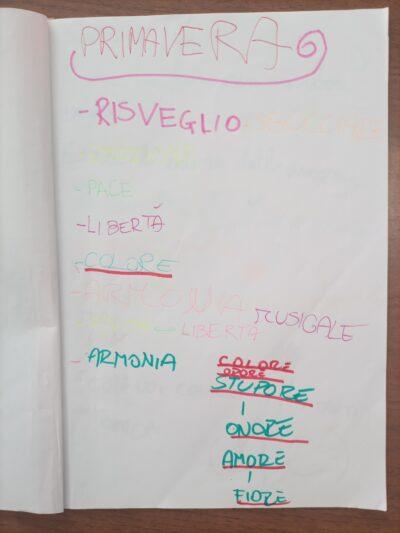 PRIMAVERA
- RISVEGLIO - SBOCCIARE
- PACE
- LIBERTÀ
- COLORE
- ARMONIA MUSICALE
- LIBERTÀ
- ARMONIA
CALORE
ODORE
STUPORE
|
ONORE
|
AMORE
|
FIORE